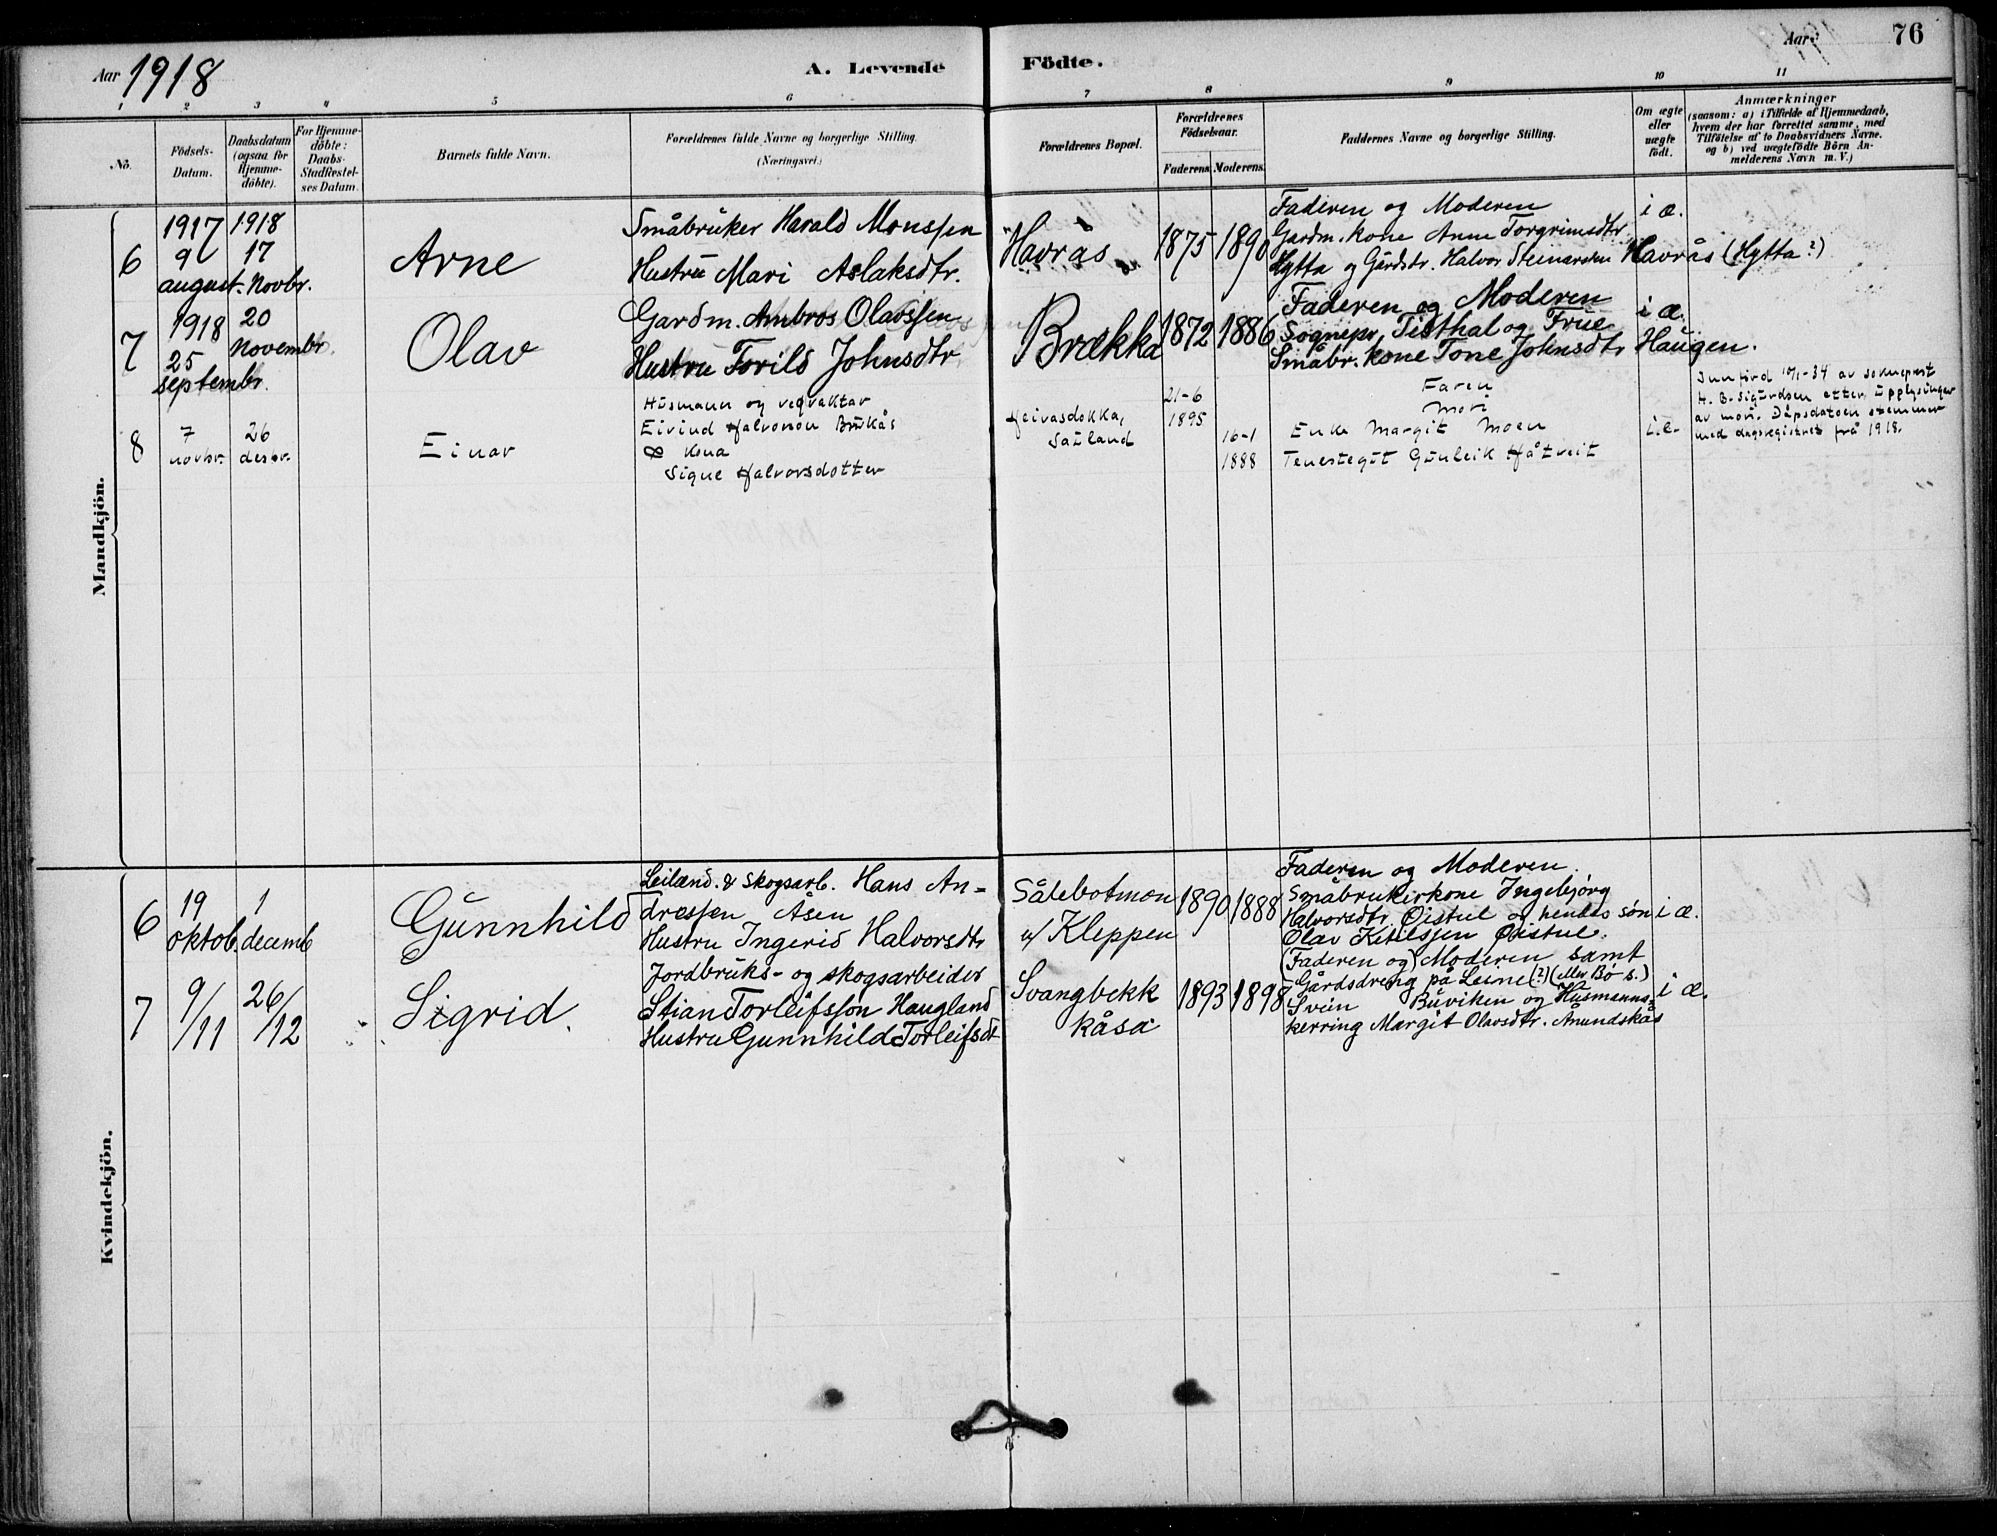 Aar 1918
A. Levende Födte.
Aar
76
1 2 3 4 5 6 7 8 9 10 11
No.
Födsels-Datum.
Daabsdatum (ogsaa for Hjemmedöbte).
For Hjemmedöbte: Daabs-Stadfæstelses Datum.
Barnets fulde Navn.
Forældrenes fulde Navne og borgerlige Stilling. (Næringsvei.)
Forældrenes Bopæl.
Forældrenes Födselsaar.
Faderens. Moderens.
Faddernes Navne og borgerlige Stilling.
Om ægte eller uægte födt.
Anmærkninger
(saasom: a) i Tilfælde af Hjemmedaab,
hvem der har forrettet samme, med
Tilföielse af to Daabsvidners Navne.
og b) ved uægtefödte Börn An-
melderens Navn m. V.)
Mandkjön.
6
1917
9
august.
1918
17
Novbr.
Arne
Småbruker Harald Monssen
Hustru Mari Aslaksdtr.
Havrås
1875
1890
Faderen og Moderen
Gardm. kone Anne Torgrimsdtr
Hytta og Gårdstr. Halvor Steinarsen Havrås (Hytta?)
i æ.
7
1918
25
septembr.
20
Novembr.
Olav
Gardm. Ambros Olavssen
Hustru Torild Johnsdtr
Brækka
1872
1886
Faderen og Moderen
Sognepr. Tisthal og Frue
Småbr. kone Tone Johnsdtr Haugen.
i æ.
8
7
novbr.
26
desbr.
Einar
Husmann og vegvaktar
Eivind Halvorson Brukås
& kona
Signe Halvorsdotter
Heivasdokka,
Sauland
21-6
1895
16-1
1888
Faren
Mori
Enke Margit Moen
Tenestegut Gunleik Håtveit
i.e.
Innförd 10/1-34 av sokneprest
H. B. Sigurdsen etter upplysingar
av mori. Dåpsdatoen stemmer
med dagsregistret frå 1918.
Kvindekjön.
6
19
oktob.
1
decemb
Gunnhild
Leilænd. & skogsarb. Hans An-
dressen Åsen
Hustru Ingerid Halvorsdtr
Såtebotmon
u/ Kleppen
1890
1888
Faderen og Moderen.
Småbrukerkone Ingebjörg
Halvorsdtr Øistul og hendes sön
Olav Ketilssen Øistul.
i æ.
7
9/11
26/12
Sigrid.
Jordbruks- og skogsarbeider
Stian Torleifsson Haugland
Hustru Gunnhild Torleifsdt
Svangbekk
kåsa
1893
1898
(Faderen og) Moderen samt
Gårdsdreng på Leine (?) (eller Bø s.)
Svein Buviken og Husmanns-
kerring Margit Olavsdtr. Amundskås
i æ.